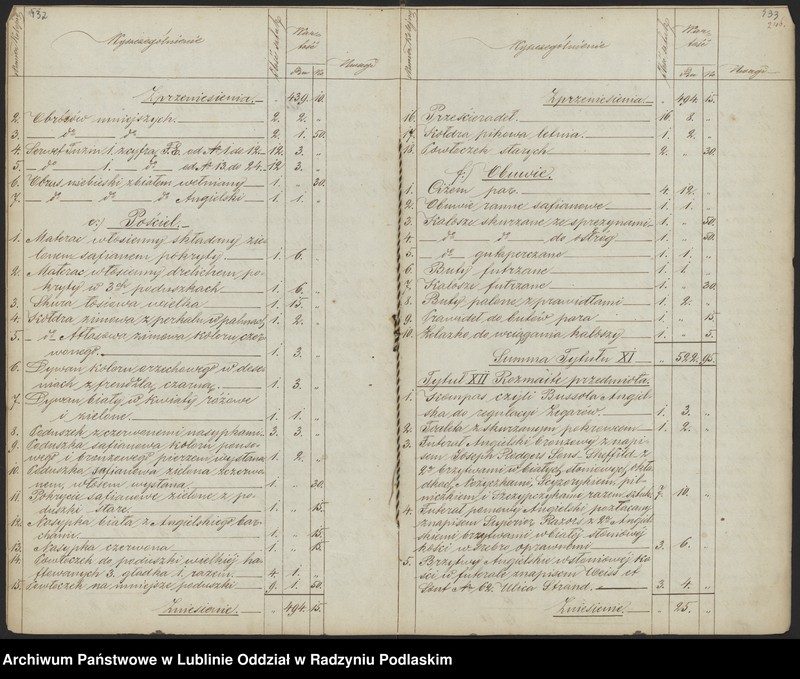 932
Wyszczególnienie
War-
tość
Rs
Ko
Uwagi
Z przeniesienia. „ 439. 10.
2. Obrusów mniejszych. 2. 2. „
3. — dº — dº 2. 1. 50.
4. Serwet Tuzin 1. z cyfrą od Nr 1 do 12 12. 3. „
5. — dº — 1. — dº — od Nr 13 do 24. 12. 3. „
6. Obrus niebieski z białem wełniany 1. „ 30.
7. — dº — dº — dº Angielski 1. 1. „
e.) Pościel.
1. Materac włosienny składany zie-
lonem safianem pokryty 1. 6. „
2. Materac włosienny drelichem po-
kryty w 3ch poduszkach. 1. 6. „
3. Skóra łosiowa wielka 1. 15. „
4. Kołdra zimowa z perkalu w palmach, 1. 2. „
5. — dº Atłasowa zimowa koloru czer-
wonego. 1. 3. „
6. Dywan koloru orzechowego w dese-
niach z frendzlą czarną. 1. 3. „
7. Dywan biały w kwiaty różowe
i zielone. 1. 1. „
8. Poduszek z czerwonemi nasypkami 3. 3. „
9. Poduszka safianowa koloru ponso-
wego i bronzowego pierzem wysłana 1. 2. „
10. Poduszka safianowa zielona z czerwo-
nem, włosem wysłana. 1. „ 30.
11. Pokrycie safianowe zielone z po-
duszki stare. 1. „ 15.
12. Nasypka biała z Angielskiego bar-
chanu. 1. „ 15.
13. Nasypka czerwona 1. „ 15.
14. Powłoczek do poduszki wielkiéj ha-
ftowanych 3. gładka 1. razem. 4. 1. „
15. Powłoczek na mniejsze poduszki. 9. 1. 50.
Zniesienie. „ 494. 15.
933
Wyszczególnienie
War-
tość
Rs
Ko
Uwagi
Z przeniesienia. „ 494. 15.
16. Prześcieradeł. 16. 8. „
17. Kołdra pikowa letnia. 1. 2. „
18. Powłoczek starych 2. „ 30.
f.) Obuwie.
1. Ciżem par. 4. 12. „
2. Obuwie ranne safianowe. 1. 1. „
3. Kalosze skurzane ze sprężynami 1. „ 50.
4. — dº — dº — do ostróg 1. „ 50.
5. — dº gutaperczane 1. 1. „
6. Buty futrzane 1. 1. „
7. Kalosze futrzane 1. „ 30.
8. Buty palone z prawidłami 1. 2. „
9. Prawideł do butów para 1. „ 15.
10. Żelazko do wciągania kaloszy 1. „ 5.
Summa Tytułu XI „ 522. 95.
Tytuł XII Rozmaite przedmiota.
1. Kompas czyli Bussola Angiel-
ska do regulacyi Zegarów. 1. 3. „
2. z skurzanym pokrowcem 1. 2. „
3. Futerał Angielski bronzowy z napi-
sem Joseph Rodgers Sons Sheffild z
2ma brzytwami w białych słoniowych okła-
dkach, Nożyczkami, Scyzorykiem, pil-
niczkiem i Szczypczykami razem sztuk 7. 10. „
4. Futerał ponsowy Angielski pozłacany
z napisem Superior Razors z 2ma Angiel-
skiemi brzytwami w białéj słoniowéj
kości w srebro oprawnemi 3. 6. „
5. Brzytwy Angielskie w słoniowéj ko-
ści w futerale z napisem Weiss et
Son Nr 62. Ulica Strand. 3. 4. „
Zniesienie. „ 25. „
Archiwum Państwowe w Lublinie Oddział w Radzyniu Podlaskim